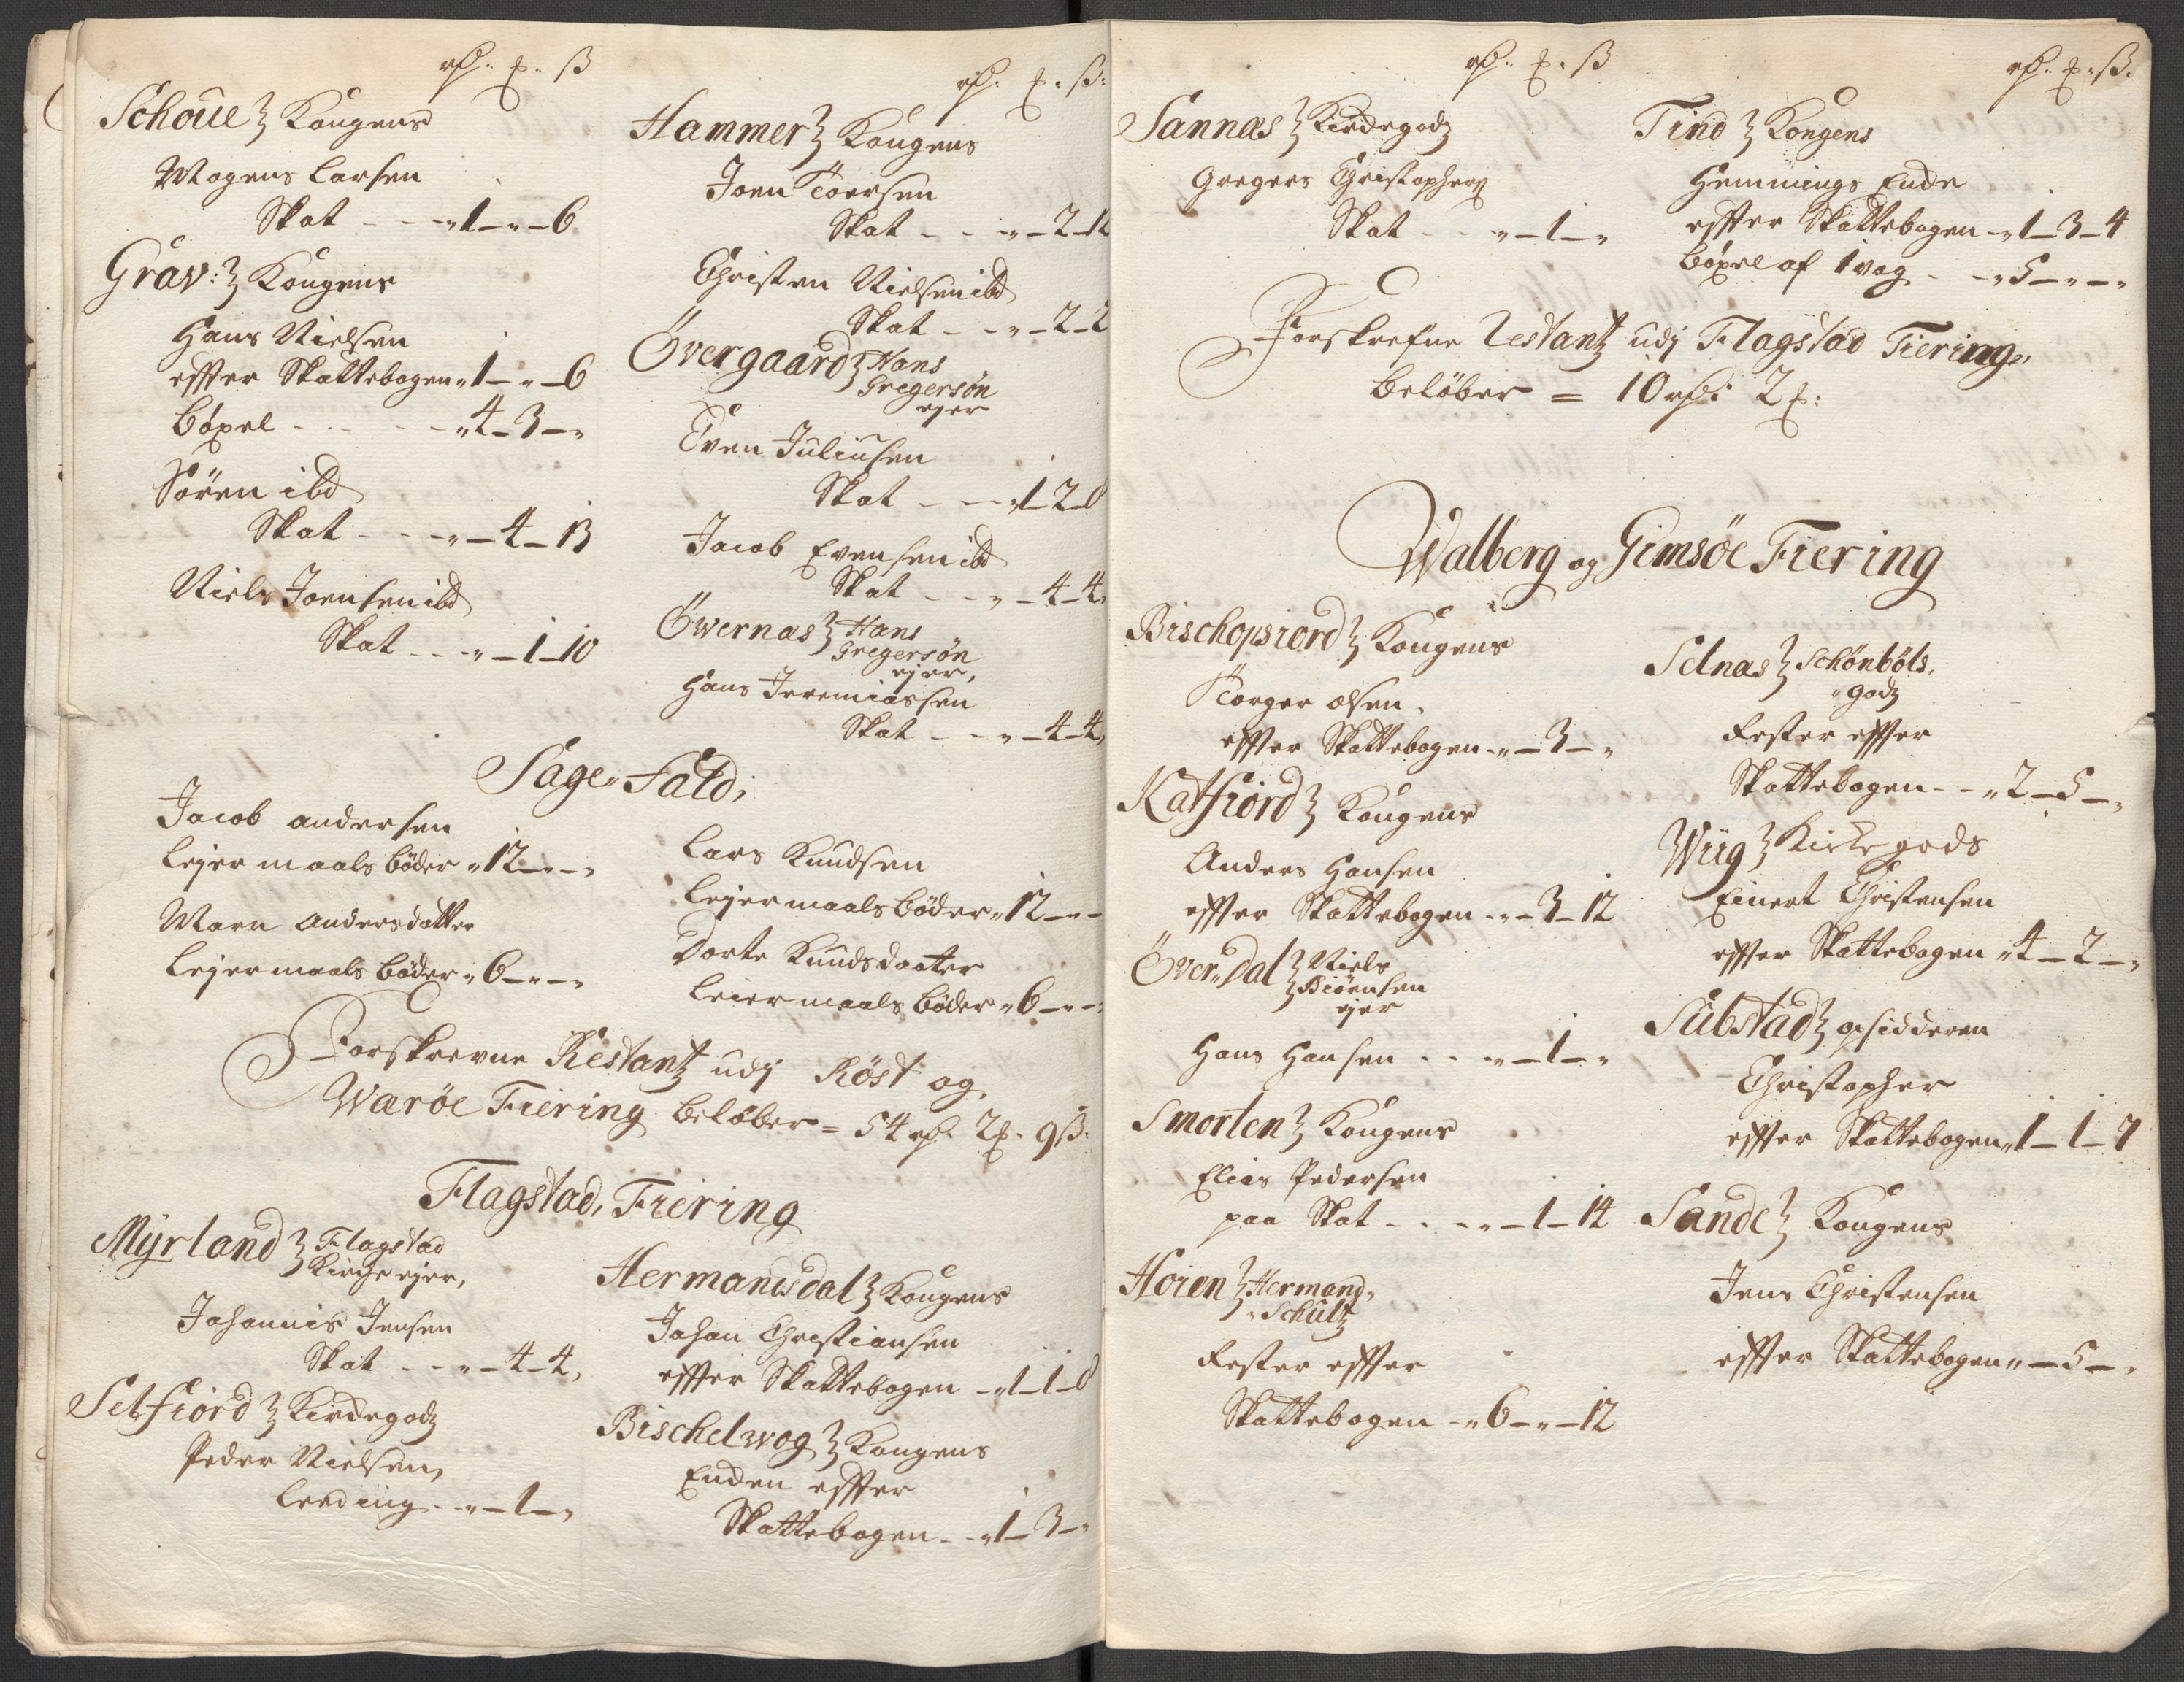 rd. ₻. ß
Schoue} Kongens
Mogens Larsen
Skat - - - „ 1 - „ - 6
Grav:} Kongens
Hans Nielsen
effter Skattebogen „ 1 - „ - 6
Böxel - - - - „ 4 - 3 - „
Sören ibd
Skat - - - „ - 4 - 13
Niels Joensen ibd
Skat - - - „ - 1 - 10
rd. ₻. ß:
Hammer} Kongens
Joen Toersen
Skat - - - „ - 2 - 12
Christen Nielsen ibd
Skat - - „ - 2 - 2
Övergaard} Hans
Gregersøn
ejer
Even Juliusen
Skat - - - „ 1 - 2 - 8
Jacob Evensen ibd
Skat - - „ - 4 - 4
Öwernas} Hans
Gregersøn
ejer,
Hans Jeremiassen
Skat - - „ - 4 - 4
Sage-Fald;
Jacob Andersen
Lejermaals Böder „ 12 - „ - „
Marn Andersdatter
Lejermaals Böder „ 6 - „ - „
Lars Knudsen
Lejermaals Böder „ 12 - „ -
Dorte Knudsdaater
Leiermaals Böder „ 6 - „ - „
Forskrevne Restantz udj Röst og
Waröe Fiering beløber = 54 rd. 2 ₻. 9 ß:
Flagstad, Fiering
Myrland} Flagstad
Kirche ejer,
Johannis Jensen
Skat - - „ - 4 - 4,
Selfiord} Kirchegodz
Peder Nielsen,
Leeding - - „ - 1 - „
Hermandsdal} Kongens
Johan Christiansen
effter Skattebogen - „ 1 - 1 - 8
Bischelwog} Kongens
Enden effter
Skattebogen - - „ 1 - 3 - „
rd. ₻. ß
Sannæs} Kirchegodz
Gregers Christophersen
Skat - - „ - 1 - „
rd. ₻. ß.
Tind} Kongens
Hemmings Enke
effter Skattebogen - „ 1 - 3 - 4
Böxel af 1 vog - - „ 5 - „ - „
Forskrefne Restantz udj Flagstad Fiering,
beløber = 10 rd: 2 ₻:
Walberg og Gimsöe Fiering
Bischopsiord} Kongens
Torger Olsen.
effter Skattebogen - „ - 3 - „
Katfiord} Kongens
Anders Hansen
effter Skattebogen - „ - 3 - 12
Över-Dal} Niels
Biörnsen
ejer
Hans Hansen - - „ - 1 - „
Smorten} Kongens
Elias Pedersen
paa Skat - - - „ - 1 - 14
Hoien} Hermand
Schultz
Rester effter
Skattebogen - „ 6 - „ - 12
Selnas} Schönböls
godz
Rester effter
Skattebogen - - „ 2 - 5 - „
Wiig} Kirke gods
Einert Christensen
effter Skattebogen „ 4 - 2 - „
Substad} opsidderen
Christopher
effter Skattebogen „ 1 - 1 - 7
Sande} Kongens
Jens Christensen
effter Skattebogen „ - 5 - „